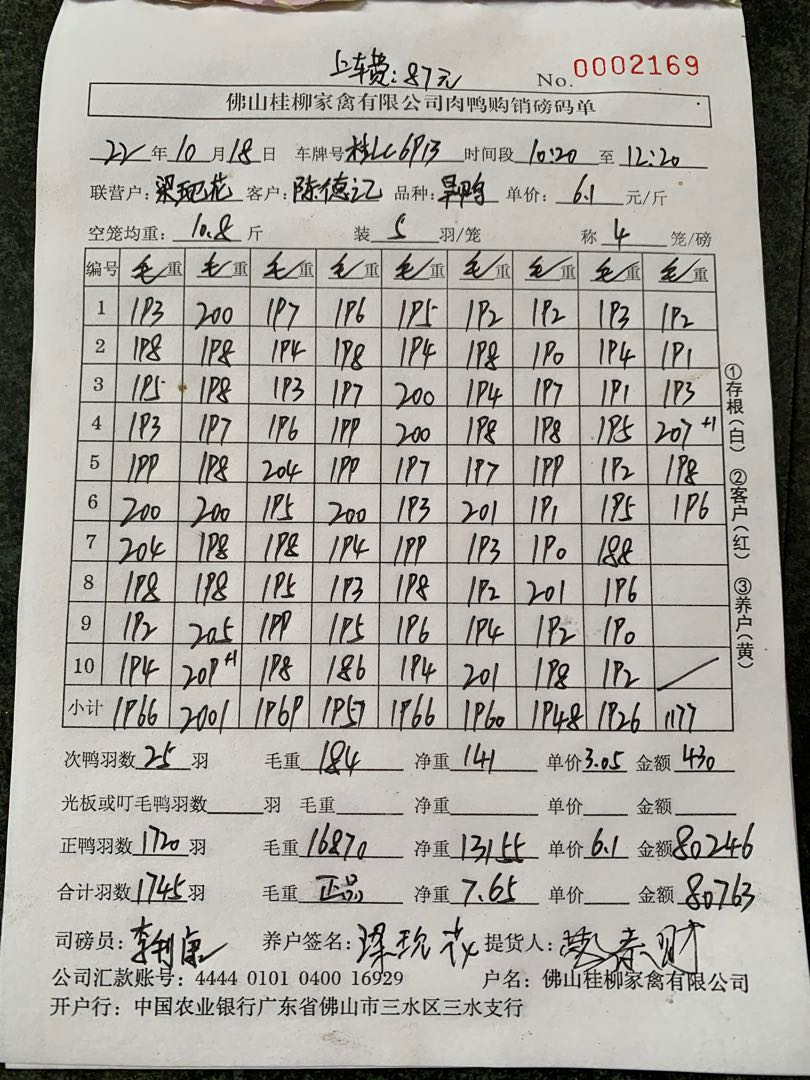 上车费:87元
No. 0002169
佛山桂柳家禽有限公司肉鸭购销磅码单
22年10月18日 车牌号桂LC6913 时间段10:20至12:20
联营户:梁砚花 客户:陈德记 品种:旱鸭 单价:6.1元/斤
空笼均重:10.8斤 装5羽/笼 称4笼/磅
编号 毛重 毛重 毛重 毛重 毛重 毛重 毛重 毛重 毛重
1 193 200 197 196 195 192 192 193 192
2 198 198 194 198 194 198 190 194 191
3 195 198 193 197 200 194 197 191 193
4 193 197 196 199 200 198 198 195 207 +1
5 199 198 204 199 197 197 199 192 198
6 200 200 195 200 193 201 191 195 196
7 204 198 198 194 199 193 190 188
8 198 198 195 193 198 192 201 196
9 192 205 199 195 196 194 192 190
10 194 209 +1 198 186 194 201 198 192 /
小计 1966 2001 1969 1957 1966 1960 1948 1926 1177
①存根(白) ②客户(红) ③养户(黄)
次鸭羽数25羽 毛重184 净重141 单价3.05 金额430
光板或叮毛鸭羽数 羽 毛重 净重 单价 金额
正鸭羽数1720羽 毛重16870 净重13155 单价6.1 金额80246
合计羽数1745羽 毛重正品 净重7.65 单价 金额80763
司磅员:李利康 养户签名:梁砚花 提货人:
公司汇款账号:4444 0101 0400 16929 户名:佛山桂柳家禽有限公司
开户行:中国农业银行广东省佛山市三水区三水支行